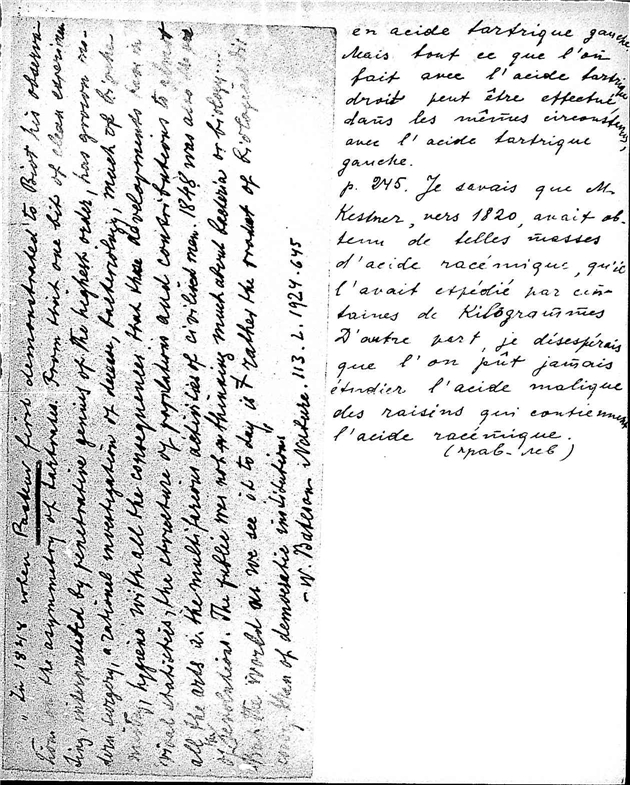 "In 1848 when Pasteur first demonstrated to Biot his observa-
tion on the asymmetry of tartrates from that one bit of clean experimen
ting, interpreted by penetrative genius of the highest order, has grown mo-
dern surgery, a rational investigation of disease, bacteriology, much of
hygiene with all the consequences that these developments have in
vital statistics, the structure of populations and contributions to almost
all the arts in the multifarious activities of civilised men. 1848 was also the
of Revolutions. The public was not thinking much about bacteria or biology...
the world as we see it to day is rather the product of biological dis-
covery than of democratic institutions"
– W. Bateson Nature. 113. I. 1924. 645
en acide tartrique gauche
Mais tout ce que l'on
fait avec l'acide tartrique
droit peut être effectué
dans les mêmes circonstances,
avec l'acide tartrique
gauche.
p. 245. Je savais que M.
Kestner, vers 1820, avait ob-
tenu de telles masses
d'acide racémique, qu'il
l'avait expédié par cen-
taines de Kilogrammes
D'autre part, je désespérais
que l'on pût jamais
étudier l'acide malique
des raisins qui contiennent
l'acide racémique.
(прав-лев)